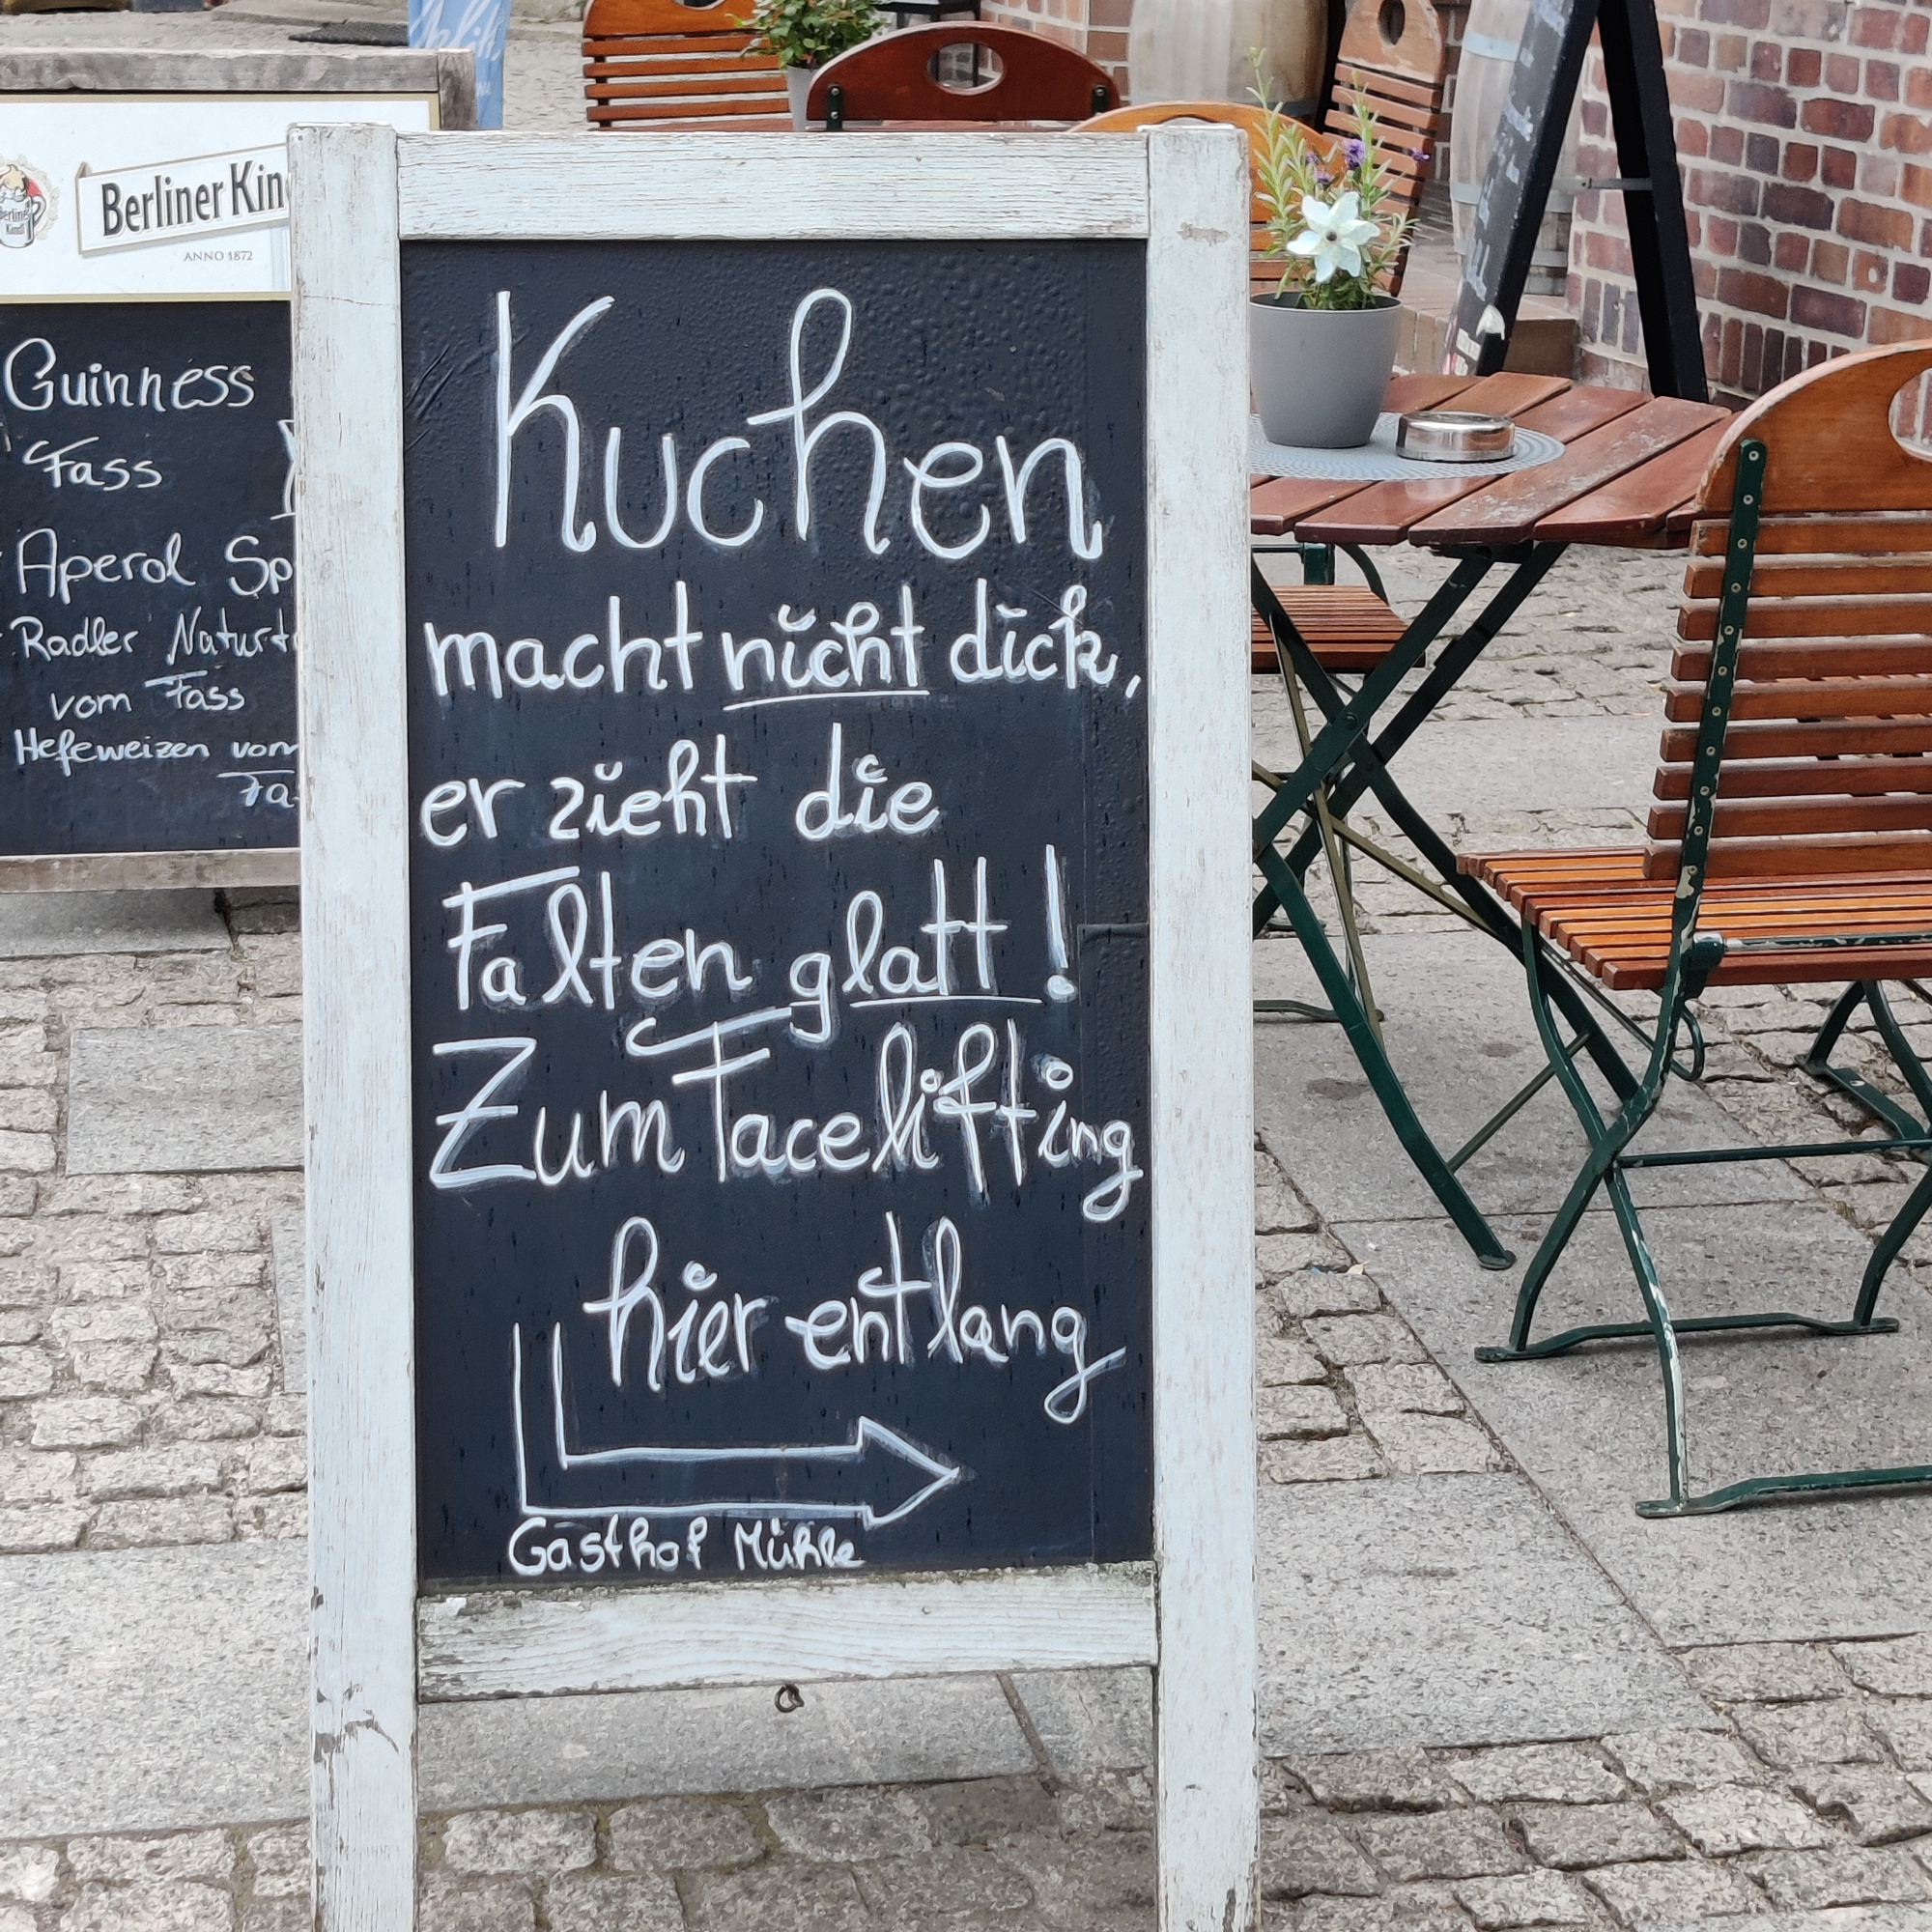 Berliner
ANNO 1872
Guinness
Fass
Aperol
Radler
vom Fass
Hefeweizen vom
Kuchen
macht nicht dick,
er zieht die
Falten glatt!
Zum Facelifting
hier entlang
Gasthof Mühle